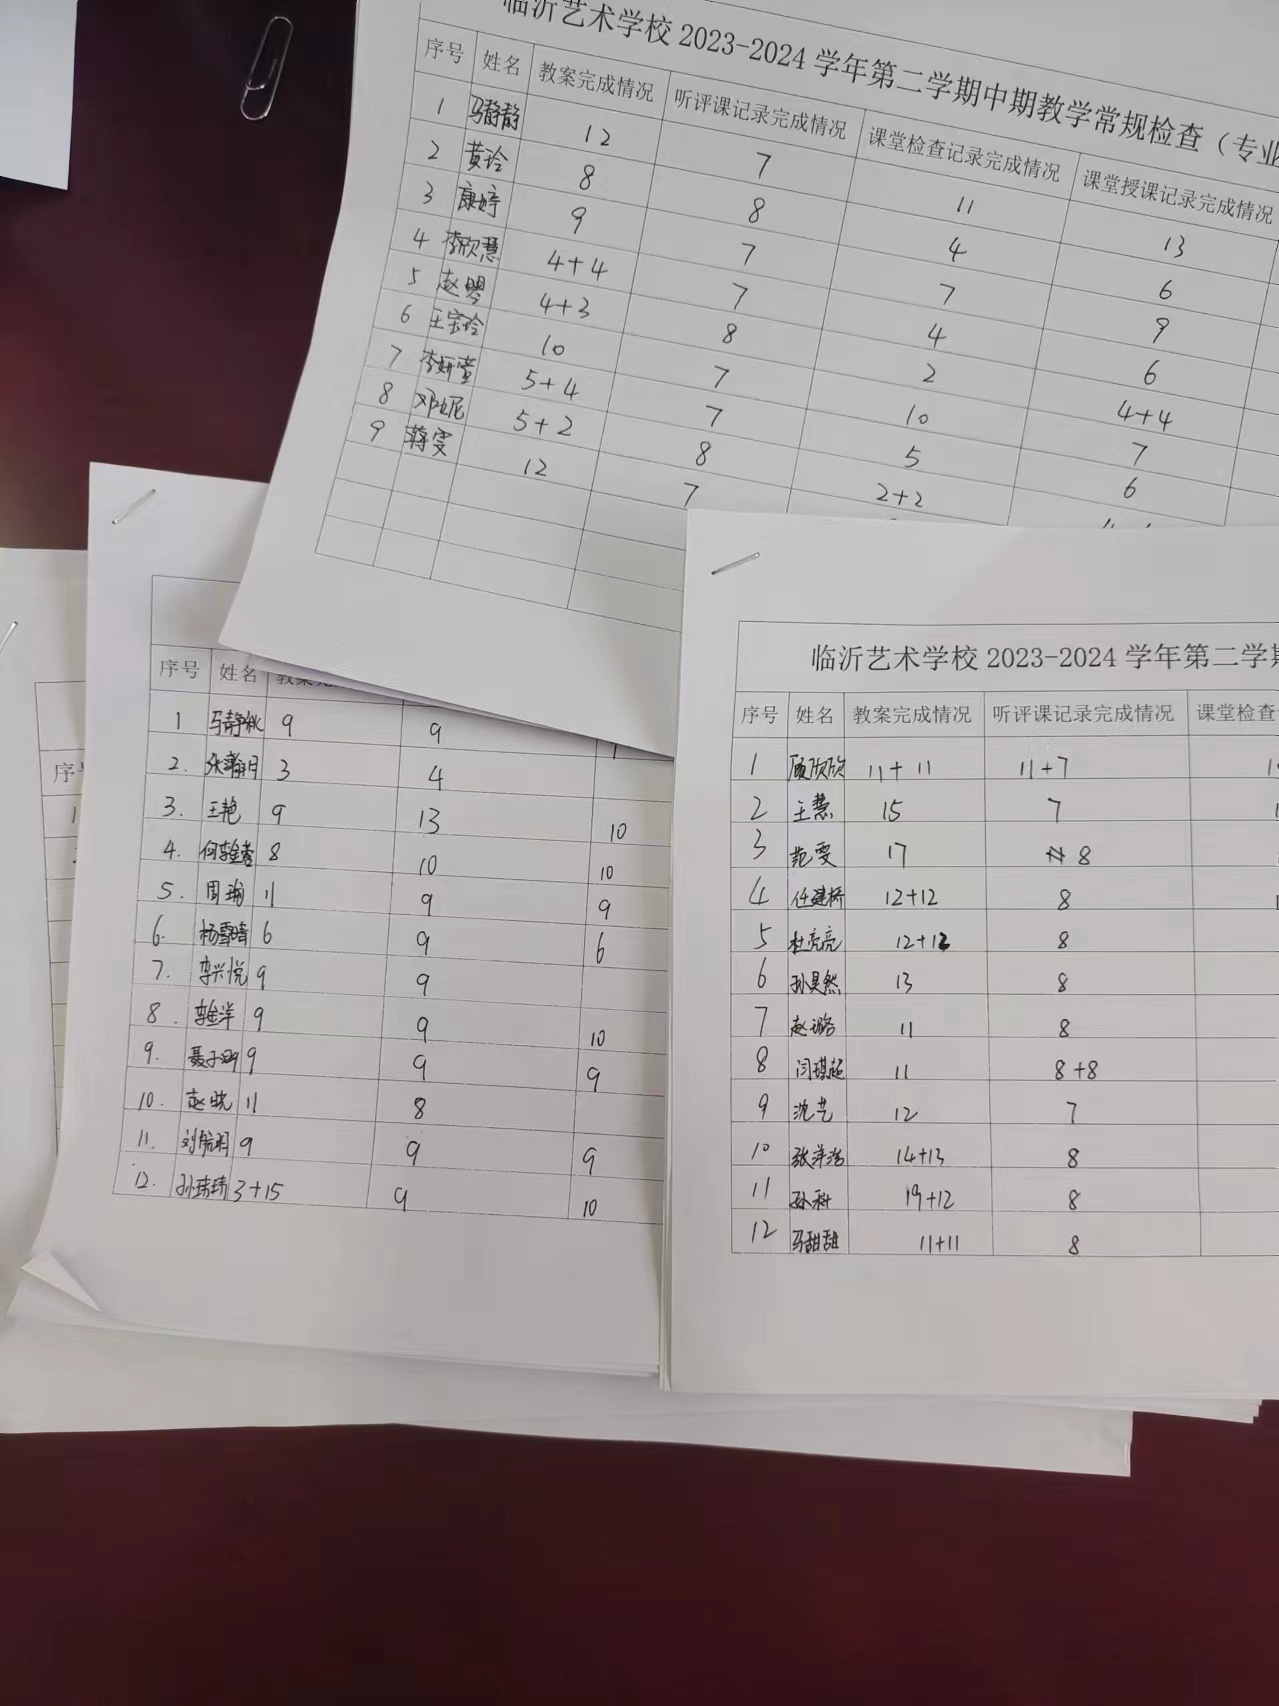 临沂艺术学校 2023-2024 学年第二学期中期教学常规检查（专业
序号 姓名 教案完成情况 听评课记录完成情况 课堂检查记录完成情况 课堂授课记录完成情况
1 马静静 12 7 11 13
2 黄玲 8 8 4 6
3 康婷 9 7 7 9
4 李欣慧 4+4 7 4 6
5 赵 4+3 8 2 4+4
6 王宗玲 10 7 10 7
7 李妍萱 5+4 7 5 6
8 邓妮 5+2 8 2+2
9 蒋雯 12 7
序号 姓名
1 马静秋 9 9
2. 张 3 4
3. 王艳 9 13 10
4. 何 8 10 10
5. 周瑜 11 9 9
6. 杨雪晴 6 9 6
7. 李兴悦 9 9
8. 李 洋 9 9 10
9. 聂子 9 9 9
10. 赵 11 8
11. 刘航明 9 9 9
12. 孙玮玮 3+15 9 10
序
临沂艺术学校 2023-2024 学年第二学期
序号 姓名 教案完成情况 听评课记录完成情况 课堂检查
1 顾欣欣 11+11 11+7
2 王慧 15 7
3 范雯 17 8
4 任建桥 12+12 8
5 杜亮亮 12+12 8
6 孙昊然 13 8
7 赵璐 11 8
8 闫琪超 11 8+8
9 沈艺 12 7
10 张萍浩 14+13 8
11 孙科 19+12 8
12 马甜甜 11+11 8